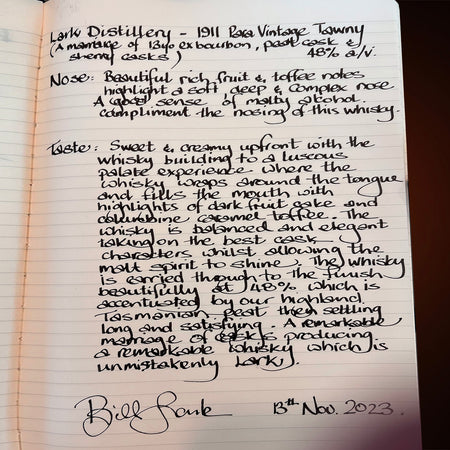 Lark Distillery - 1911 Para Vintage Tawny
(A marriage of 13yo ex bourbon, peat cask &
sherry casks) 48% a/v.
Nose: Beautiful rich fruit & toffee notes
highlight a soft, deep & complex nose
A good sense of malty alcohol
compliment the nosing of this whisky.
Taste: Sweet & creamy upfront with the
whisky building to a luscous
palate experience where the
whisky wraps around the tongue
and fills the mouth with
highlights of dark fruit cake and
columbine caramel toffee. The
whisky is balanced and elegant
taking on the best cask
characters whilst allowing the
malt spirit to shine. The whisky
is carried through to the finish
beautifully at 48% which is
accentuated by our highland
Tasmanian peat then settling
long and satisfying. A remarkable
marriage of casks producing
a remarkable whisky which is
unmistakenly Lark.
Bill Lark 13th Nov. 2023.